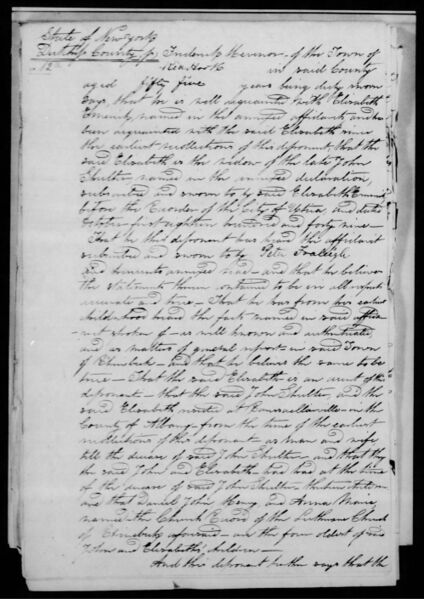 State of New York
Dutchess County ss Frederick Hevenor of the Town of
in said County
aged fifty five years being duly sworn
says that he is well acquainted with Elizabeth
named in the annexed affidavit and has
been acquainted with the said Elizabeth since
the earliest recollections of this deponent, that the
said Elizabeth is the widow of the late John
Shulter named in the annexed declaration
subscribed and sworn to by said Elizabeth
before the Recorder of the City of Utica and dated
October first eighteen hundred and forty nine —
That he this deponent has read the affidavit
subscribed and sworn to by Peter Fraleigh
and hereunto annexed read — and that he believes
the statements therein contained to be in all respects
accurate and true — That he has from his earliest
childhood heard the facts named in said affida-
vit spoken of — as well known and authenticated
and as matters of general repute in said Town
of Rhinebeck — and that he believes the same to be
true — That the said Elizabeth is an aunt of this
deponent — that the said John Shulter and the
said Elizabeth resided at — in the
County of Albany from the time of the earliest
recollections of this deponent as man and wife
till the decease of said John Shulter — and that they
the said John and Elizabeth had had at the time
of the decease of said John Shulter children
and that Daniel John Henry and Anna Maria
named in the Church Record of the Lutheran Church
of Rhinebeck aforesaid — are the four oldest of said
John and Elizabeths children —
And this deponent further says that the